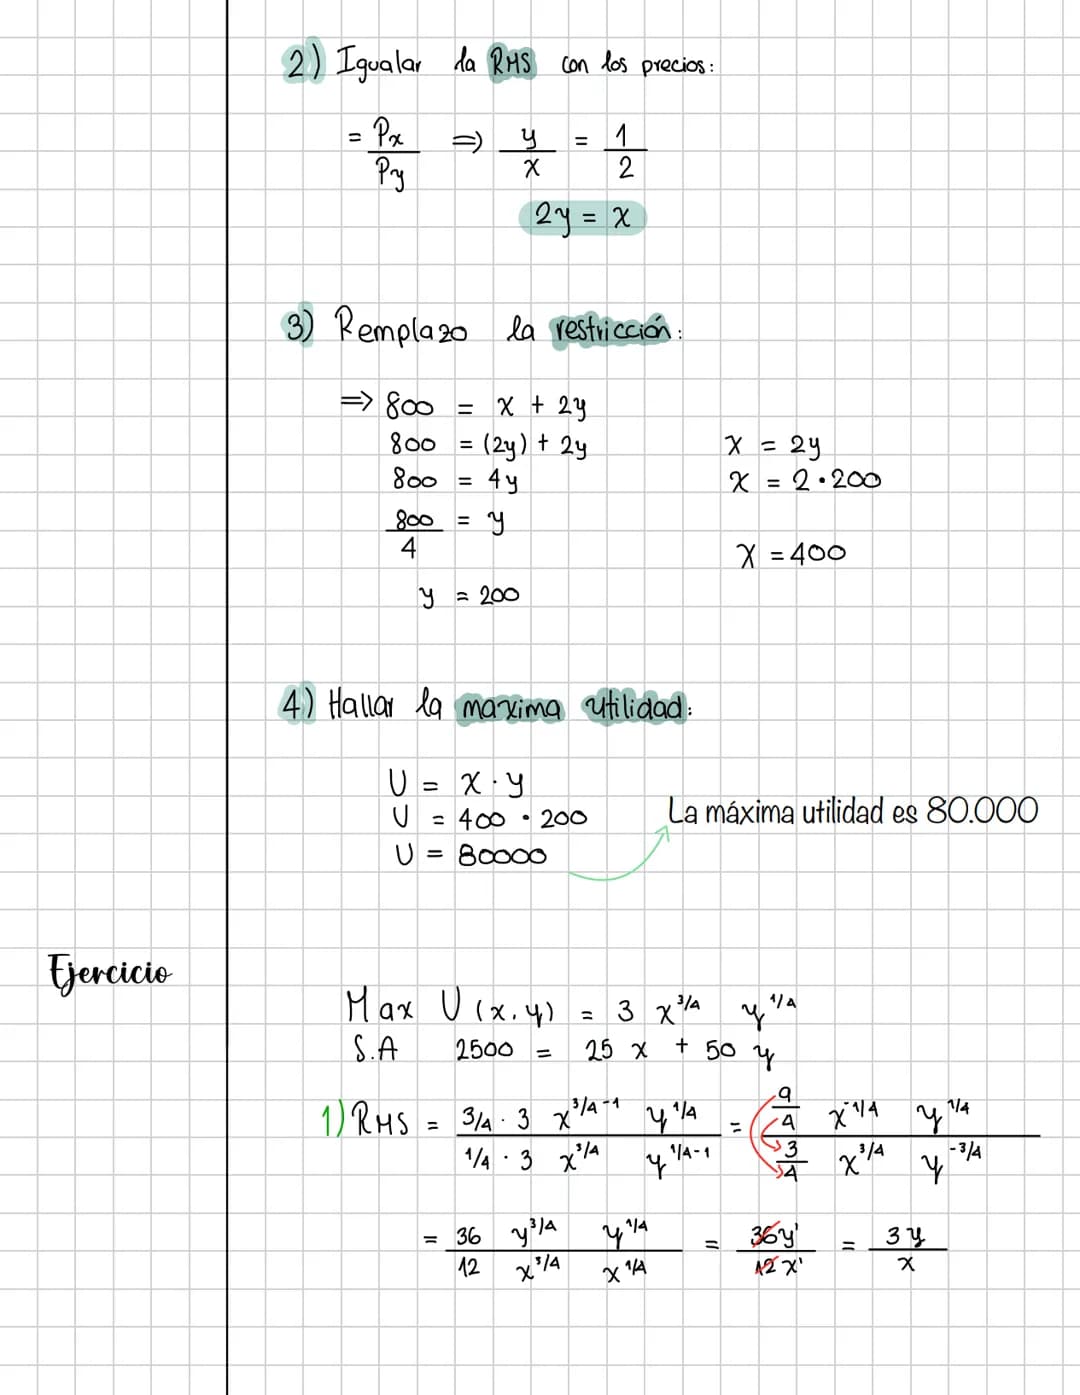 2) Igualar la RMS con los precios:
= Px/Py ⇒ y/x = 1/2
2y = x
3) Remplazo la restricción:
⇒ 800 = x + 2y
800 = (2y) + 2y
800 = 4y
800/4 = y
y = 200
x = 2y
x = 2·200
x = 400
4) Hallar la maxima utilidad:
U = x·y
U = 400 · 200
U = 80000
La máxima utilidad es 80.000
Ejercicio
Max U(x,y) = 3 x^3/4 y^1/4
S.A 2500 = 25 x + 50 y
1) RMS = (3/4 · 3 x^3/4-1 y^1/4)/(1/4 · 3 x^3/4 y^1/4-1) = (9/4 x^-1/4 y^1/4)/(3/4 x^3/4 y^-3/4)
= (36 y^3/4 y^1/4)/(12 x^3/4 x^1/4) = 36y^1/12x^1 = 3y/x